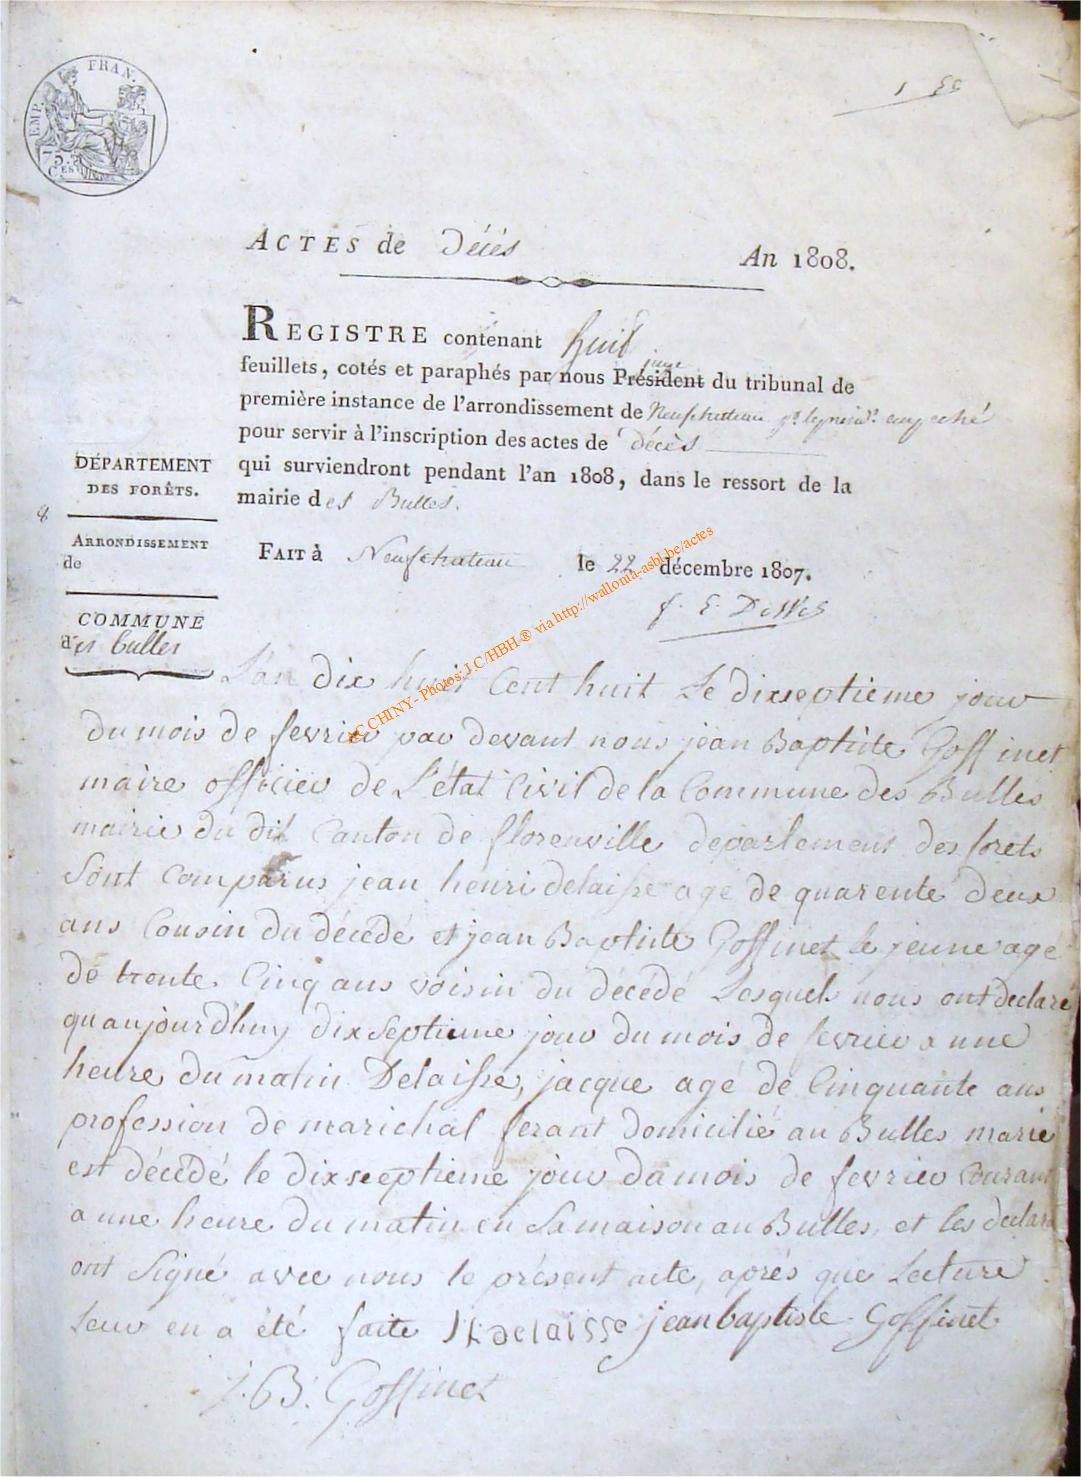 EMP. FRAN.
75.
CES
1
ACTES de Décès
An 1808.
REGISTRE contenant huit
juge
feuillets, cotés et paraphés par nous Président du tribunal de
première instance de l'arrondissement de Neufchateau empeché
pour servir à l'inscription des actes de Décès
qui surviendront pendant l'an 1808, dans le ressort de la
mairie des Bulles.
DÉPARTEMENT
DES FORÊTS.
8
ARRONDISSEMENT
de
COMMUNE
d'es bulles
FAIT à Neufchateau le 22 décembre 1807.
CCHINY- Photos: J.C/HBH.® via http://wallonia-asbl.be/actes
L'an dix huit Cent huit Le dixseptieme jour
du mois de fevrier par devant nous jean Baptiste Goffinet
maire officier de L'état Civil de la Commune des Bulles
mairie du dit Canton de florenville departement des forets
Sont Comparus jean henri delaisse agé de quarente deux
ans Cousin du décédé et jean Baptiste Goffinet le jeune agé
de trente Cinq ans voisin du décédé Lesquels nous ont declaré
quaujourdhuy dixseptieme jour du mois de fevrier a une
heure du matin Delaisse, jacque agé de Cinquante ans
profession de marichal ferant domicilié au Bulles marié
est décédé le dixseeptieme jour du mois de fevrier courant
a une heure du matin en Sa maison au Bulles, et les declara
ont Signé avec nous le présent acte, aprés que Lecture
Leur en a été faite JhDelaisse jean baptiste Goffinet
J. B. Goffinet